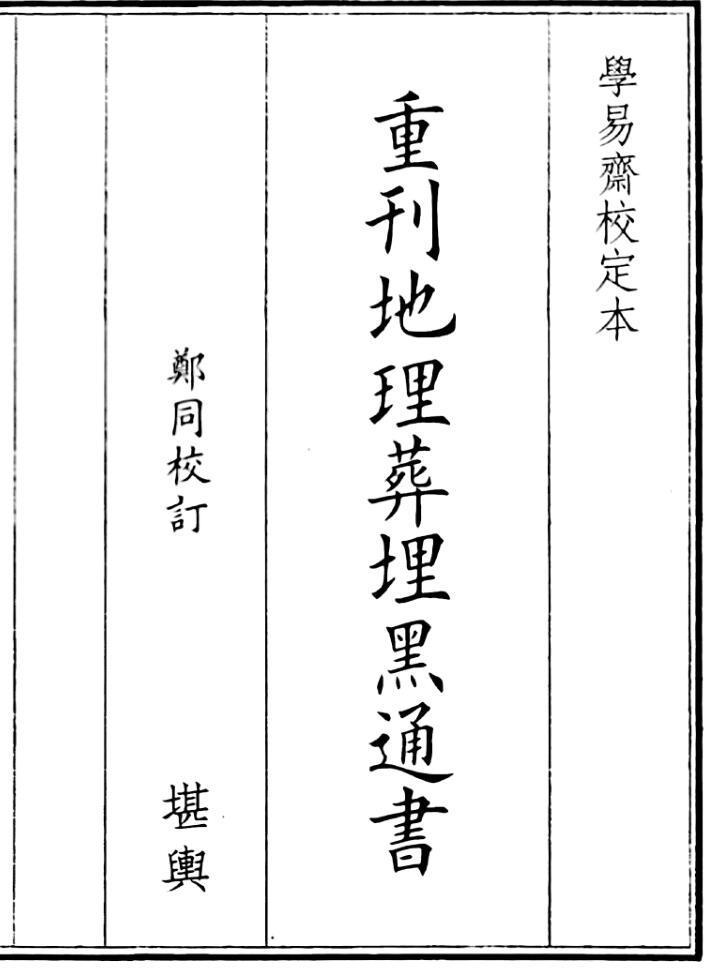 學易齋校定本
重刊地理葬埋黑通書
鄭同校訂
堪輿